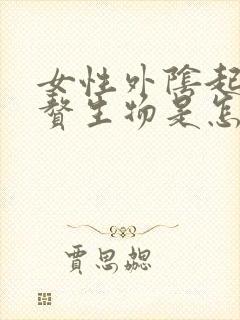 女性外陰起
贅生物是怎
賈思勰